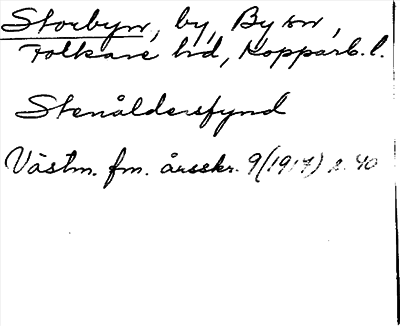 Storbyn, by, By sn,
Folkare hd, Kopparb. l.
Stenåldersfynd
Västm. fm. årsskr. 9(1917) s. 40